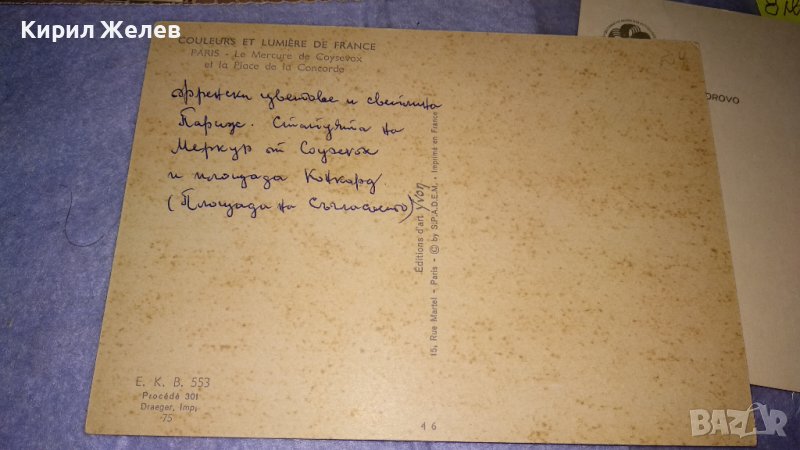 Кирил Желев
COULEURS ET LUMIÈRE DE FRANCE
PARIS - Le Mercure de Coysevox
et la Place de la Concorde
френски цветове и светлина
Париж. Статуята на
Меркур от
и площада Конкорд.
(Площада на Съгласието)
Editions d'art yvon
15, Rue Martel - Paris - © by S.P.A.D.E.M. - Imprimé en France
E. K. B. 553
Procédé 301
Draeger, Imp.
75
46
OROVO
BAZAR